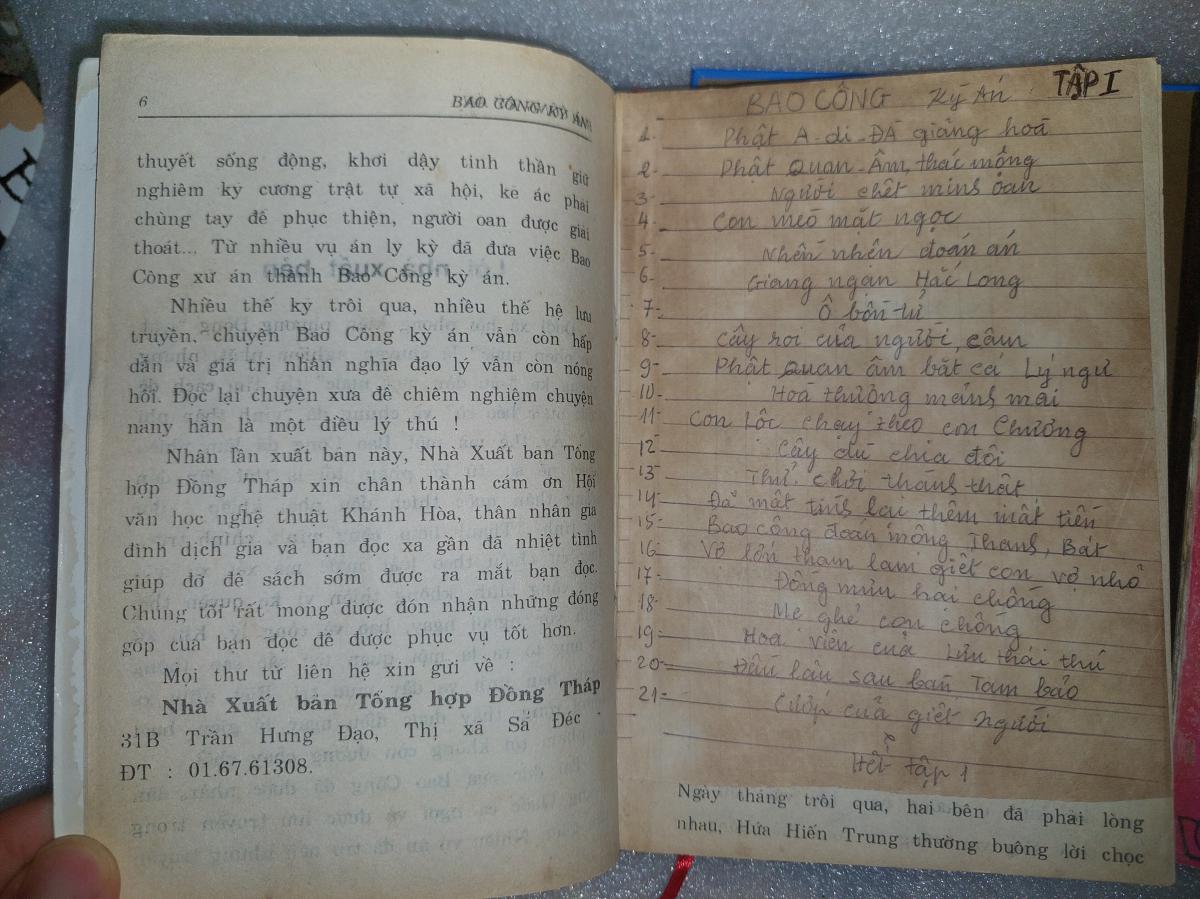 6
BAO CÔNG KỲ ÁN
thuyết sống động, khơi dậy tinh thần giữ
nghiêm kỷ cương trật tự xã hội, kẻ ác phải
chùng tay để phục thiện, người oan được giải
thoát... Từ nhiều vụ án ly kỳ đã đưa việc Bao
Công xử án thành Bao Công kỳ án.
Nhiều thế kỷ trôi qua, nhiều thế hệ lưu
truyền, chuyện Bao Công kỳ án vẫn còn hấp
dẫn và giá trị nhân nghĩa đạo lý vẫn còn nóng
hổi. Đọc lại chuyện xưa để chiêm nghiệm chuyện
nany hẳn là một điều lý thú !
Nhân lần xuất bản này, Nhà Xuất bản Tổng
hợp Đồng Tháp xin chân thành cám ơn Hội
văn học nghệ thuật Khánh Hòa, thân nhân gia
đình dịch giả và bạn đọc xa gần đã nhiệt tình
giúp đỡ để sách sớm được ra mắt bạn đọc.
Chúng tôi rất mong được đón nhận những đóng
góp của bạn đọc để được phục vụ tốt hơn.
Mọi thư từ liên hệ xin gửi về :
Nhà Xuất bản Tổng hợp Đồng Tháp
31B Trần Hưng Đạo, Thị xã Sa Đéc
ĐT : 01.67.61308.
BAO CÔNG Kỳ Án TẬP I
1- Phật A-di-ĐÀ giảng hoá
2- Phật Quan-Âm, thác mộng
3- Người chết minh oan
4- Con mèo mắt ngọc
5- Nhền nhện đoán án
6- Giang ngạn Hắc Long
7- Ô bồn tử
8- Cây roi của người câm
9- Phật Quan âm bắt cá Lý ngư
10- Hoà thượng mãnh mai
11- Con Lốc chạy theo con Chương
12- Cây dù chia đôi
13- Thử chơi thành thật
14- Đã mất tính lại thêm mất tiền
15- Bao công đoán mộng Thanh, Bát
16- Vợ lớn tham lam giết con vợ nhỏ
17- Đồng mưu hại chồng
18- Mẹ ghẻ con chồng
19- Hoa viên của Lưu thái thú
20- Đầu lâu sau bàn Tam bảo
21- Cướp của giết người
Hết tập 1
Ngày tháng trôi qua, hai bên đã phải lòng
nhau, Hứa Hiến Trung thường buông lời chọc